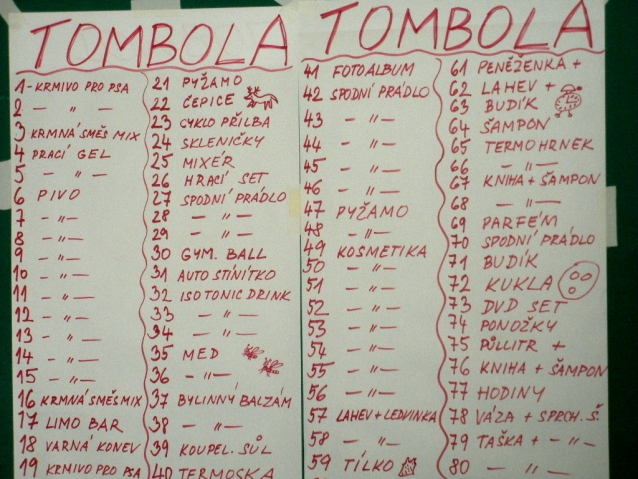 TOMBOLA
1 - KRMIVO PRO PSA
2 — „ —
3 KRMNÁ SMĚS MIX
4 PRACÍ GEL
5 — „ —
6 PIVO
7 — „ —
8 — „ —
9 — „ —
10 — „ —
11 — „ —
12 — „ —
13 — „ —
14 — „ —
15 — „ —
16 KRMNÁ SMĚS MIX
17 LIMO BAR
18 VARNÁ KONEV
19 KRMIVO PRO PSA
21 PYŽAMO
22 ČEPICE
23 CYKLO PŘILBA
24 SKLENIČKY
25 MIXÉR
26 HRACÍ SET
27 SPODNÍ PRÁDLO
28 — „ —
29 — „ —
30 GYM. BALL
31 AUTO STÍNÍTKO
32 ISOTONIC DRINK
33 — „ —
34 — „ —
35 MED
36 — „ —
37 BYLINNÝ BALZÁM
38 — „ —
39 KOUPEL. SŮL
40 TERMOSKA
TOMBOLA
41 FOTOALBUM
42 SPODNÍ PRÁDLO
43 — „ —
44 — „ —
45 — „ —
46 — „ —
47 PYŽAMO
48 — „ —
49 KOSMETIKA
50 — „ —
51 — „ —
52 — „ —
53 — „ —
54 — „ —
55 — „ —
56 — „ —
57 LAHEV + LEDVINKA
58 — „ —
59 TÍLKO
61 PENĚŽENKA +
62 LAHEV +
63 BUDÍK
64 ŠAMPON
65 TERMOHRNEK
66 — „ —
67 KNIHA + ŠAMPON
68 — „ —
69 PARFÉM
70 SPODNÍ PRÁDLO
71 BUDÍK
72 KUKLA
73 DVD SET
74 PONOŽKY
75 PŮLLITR +
76 KNIHA + ŠAMPON
77 HODINY
78 VÁZA + SPRCH. Š.
79 TAŠKA + — „ —
80 — „ —